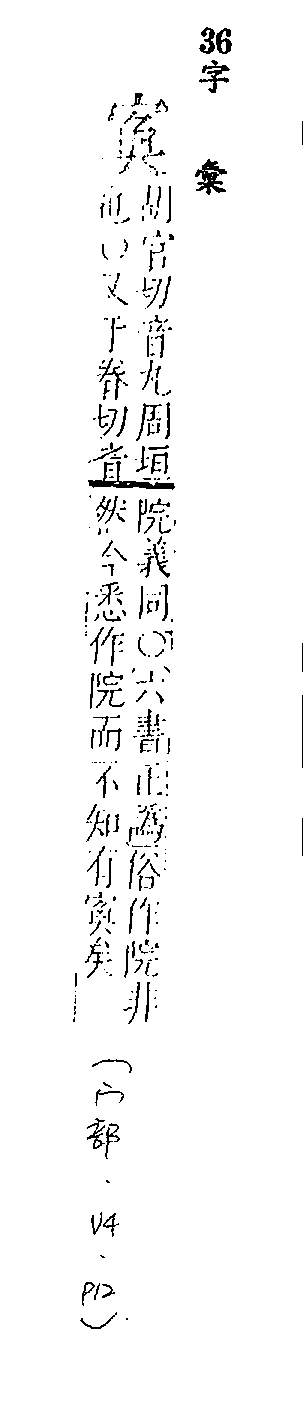 36
字彙
寏
胡官切音丸周垣
也○又于眷切音
院義同○六書正譌俗作院非
然今悉作院而不知有寏矣
(宀部.V4.P12).